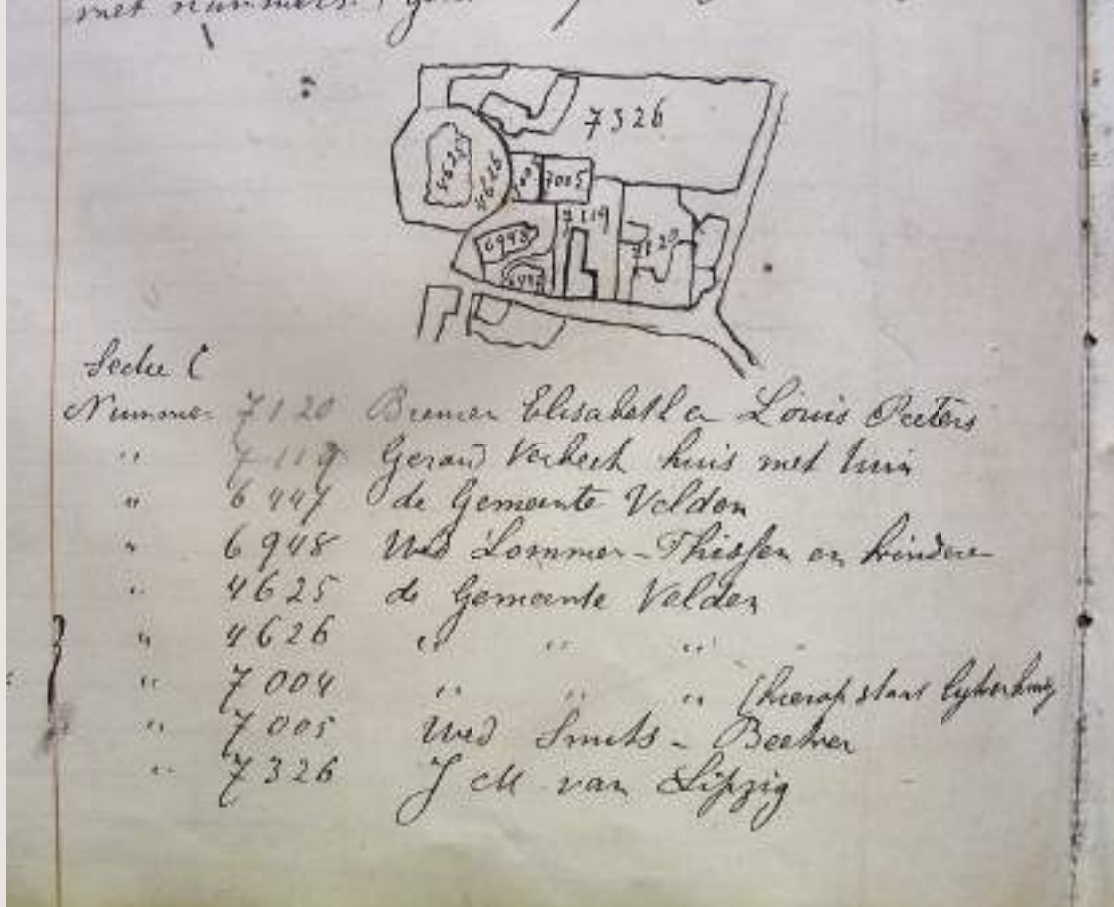 met nummers.
7326
4625
4626
7005
7119
6948
7120
Sectie C
Nummer 7120 Bremer Elisabeth en Louis Peeters
" 7119 Gerard Verbeek huis met tuin
" 6947 de Gemeente Velden
" 6948 Wed Lommer-Thissen en kinderen
" 4625 de Gemeente Velden
" 4626 " " "
" 7004 " " " (hierop staat
" 7005 Wed Smits-
" 7326 J M van Lipzig